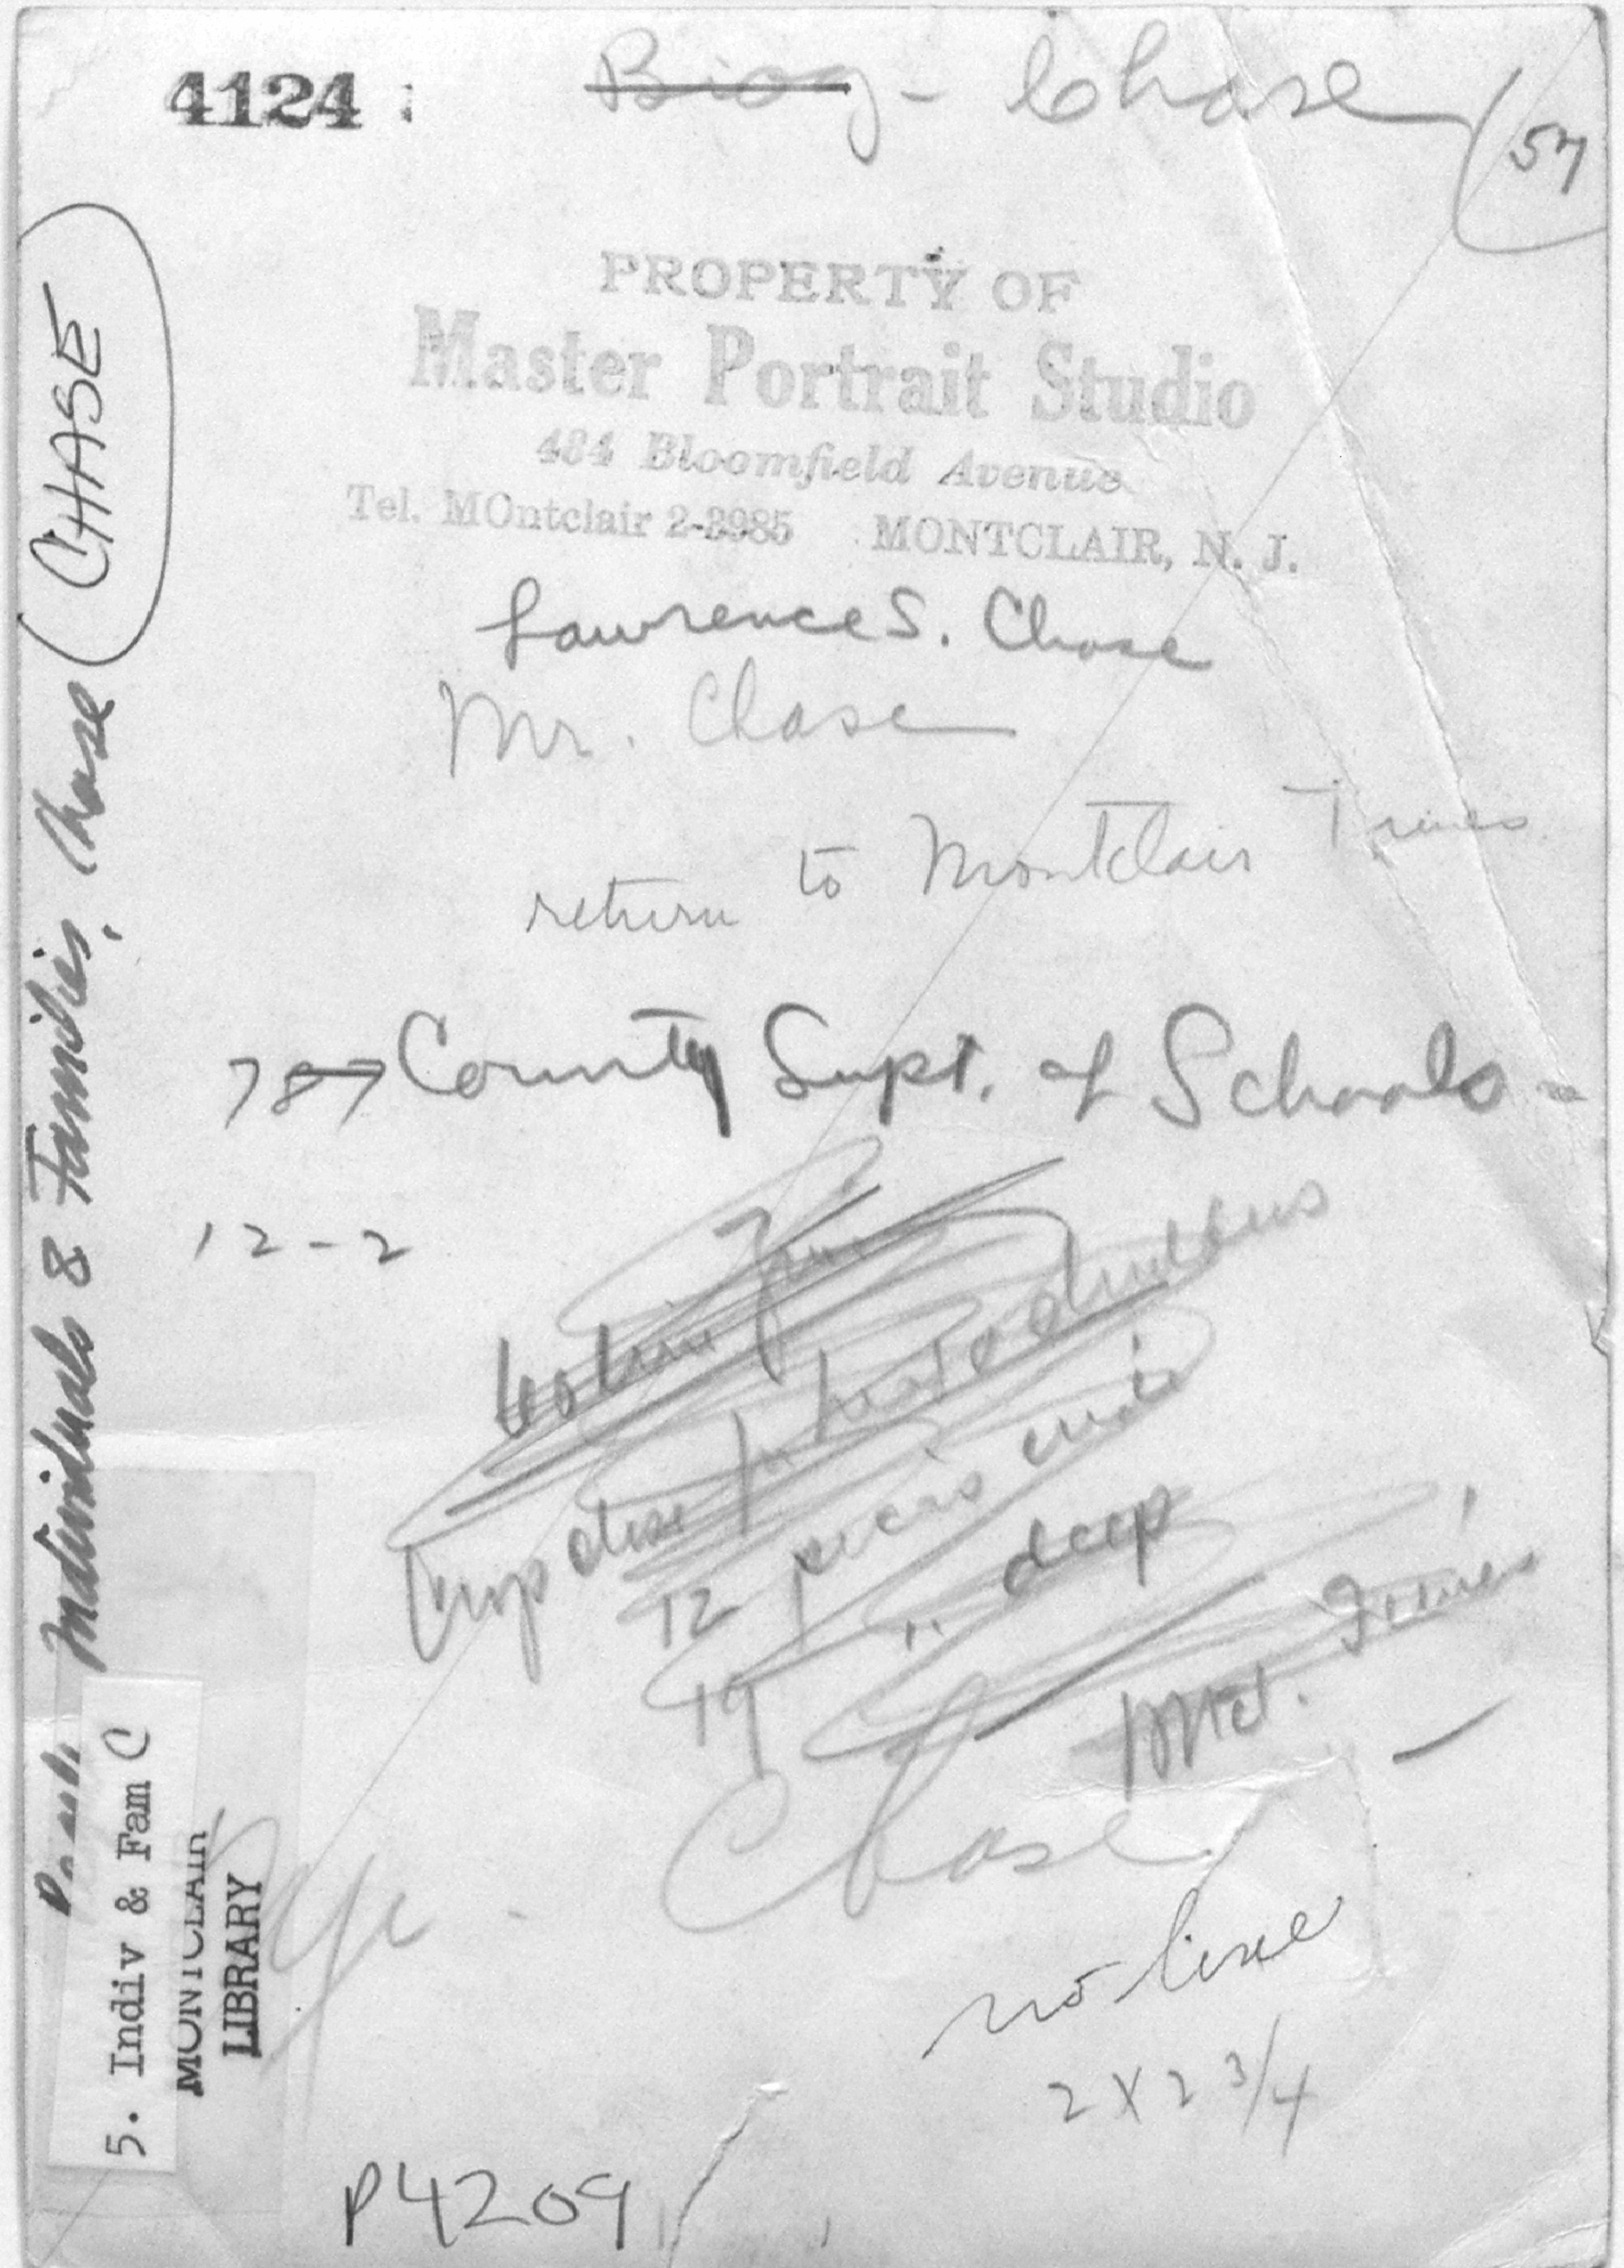 4124
Biog - Chase
57
PROPERTY OF
Master Portrait Studio
484 Bloomfield Avenue
Tel. MOntclair 2-3985 MONTCLAIR, N. J.
Lawrence S. Chase
Mr. Chase
return to Montclair Times
County Supt. of Schools -
12-2
12 deep
19
Mtcl. Times
Chase
no line
2 X 2 3/4
P4209
CHASE
Individuals & Families, Chase
5. Indiv & Fam C
MONTCLAIR
LIBRARY